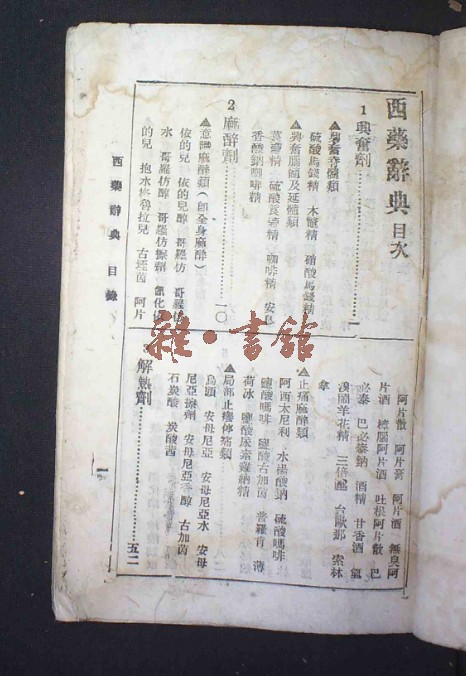 西藥辭典目次
1 興奮劑……一
▲興奮脊髓類
硫酸馬錢精 木鼈精 硝酸馬錢精
▲興奮腦髓及延髓類
莨菪精 硫酸莨菪精 咖啡精 安息
香酸鈉咖啡精
2 麻醉劑……一〇
▲意識麻醉類(卽全身麻醉)
依的兒 依的兒醇 哥羅仿 哥羅仿
水 哥羅仿醇 哥羅仿擦劑
的兒 抱水格魯拉兒 古垤茵 阿片
阿片散 阿片膏 阿片酒 無臭阿
片酒 樟腦阿片酒 吐根阿片散 巴
必泰 巴必泰鈉 酒精 甘香酒
漢國羊花精 台歐那 索林
拿
▲止痛麻醉類
阿西太尼利 水楊酸鈉 硫酸嗎啡
鹽酸嗎啡 鹽酸古加茵 普羅肯 薄
荷冰 鹽酸尿素雞納精
▲局部止癢停痛類
烏頭 安母尼亞 安母尼亞水 安母
尼亞擦劑 安母尼亞香醇 古加茵
石炭酸 炭酸茜
3 解熱劑……五二
西藥辭典 目錄
一
雜·書館